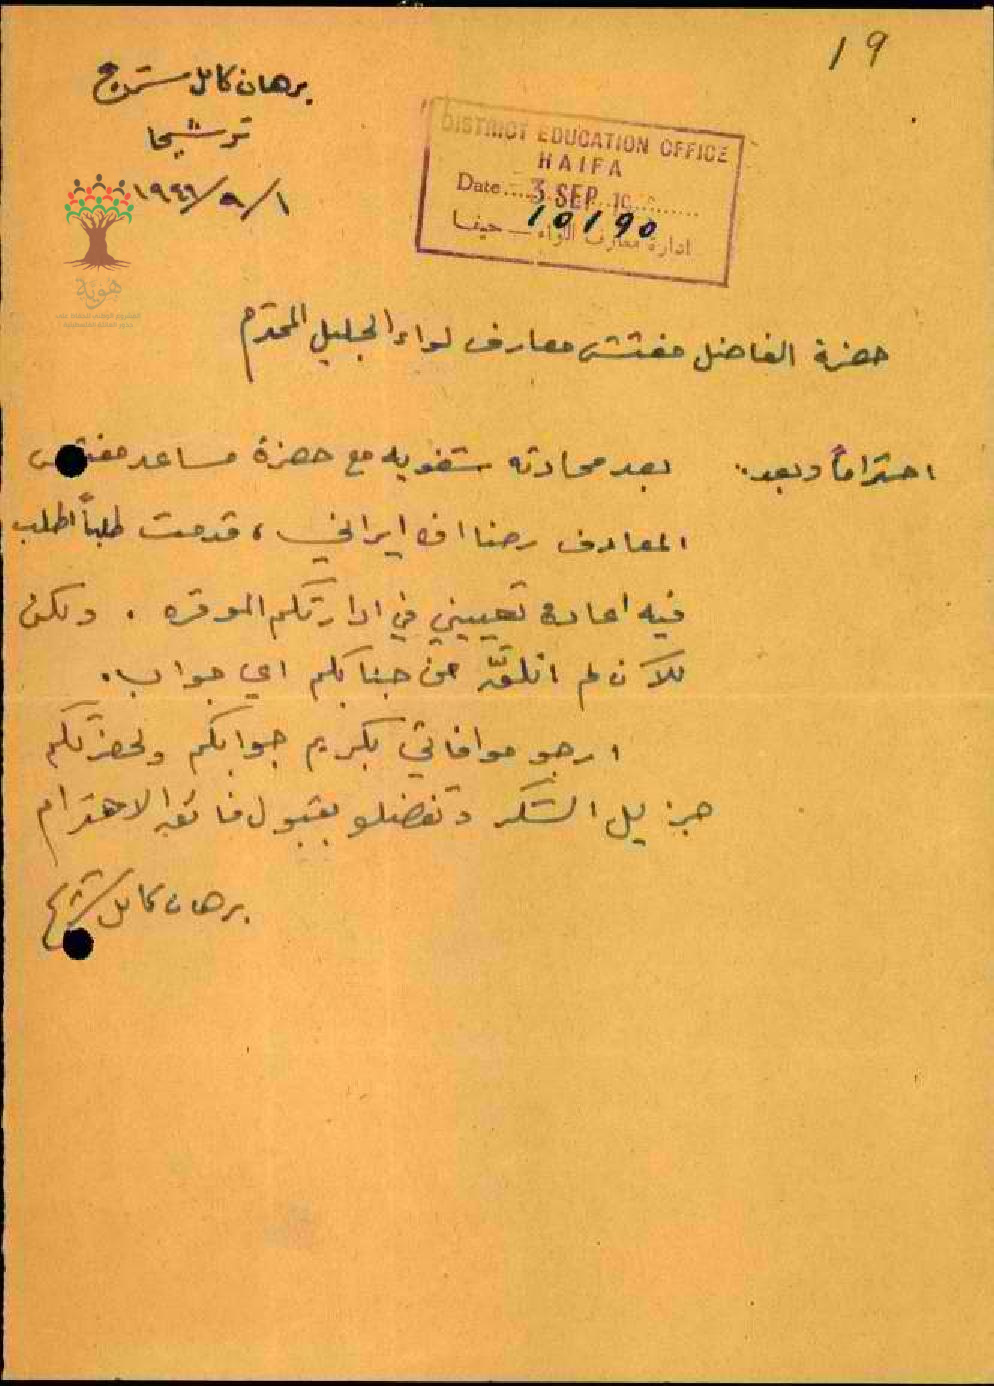 19
برهان كامل سريح
ترشيحا
١٩٤٦/٩/١
DISTRICT EDUCATION OFFICE
HAIFA
Date 3 SEP 19
10190
ادارة معارف اللواء — حيفا
هوية
حضرة الفاضل مفتش معارف لواء الجليل المحترم
احتراماً وبعد. بعد محادثه شفويه مع حضرة مساعد مفتش
المعارف رضا اف ايراني، قدمت طلباً اطلب
فيه اعادة تعييني في ادارتكم الموقره. ولكن
للآن لم اتلقَّ من جنابكم اي جواب.
ارجو موافاتي بكريم جوابكم ولحضرتكم
جزيل الشكر وتفضلو بقبول فائق الاحترام
برهان كامل